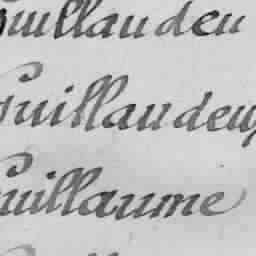 Guillaudeu
Guillaudeux
Guillaume